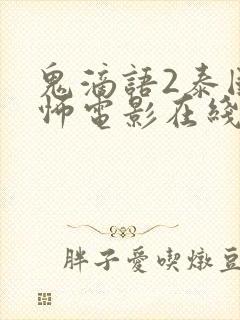 鬼滴語2泰
怖電影在綫
胖子愛喫燉豆